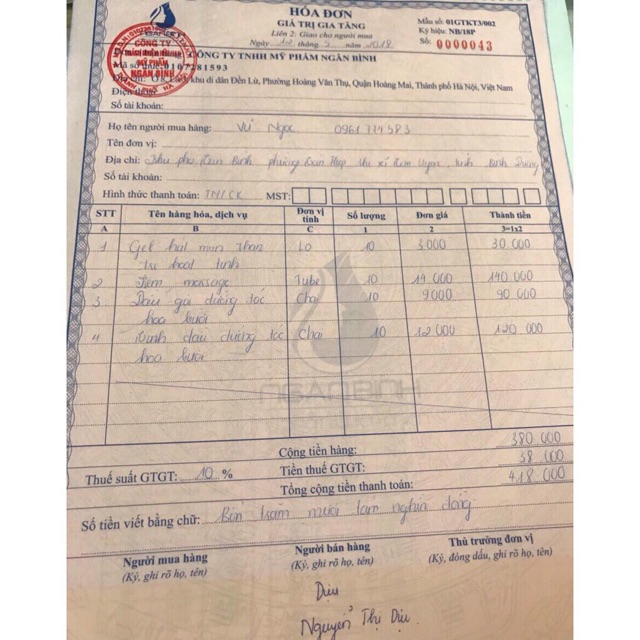 HÓA ĐƠN
GIÁ TRỊ GIA TĂNG
Liên 2: Giao cho người mua
Ngày tháng năm 2018
Mẫu số: 01GTKT3/002
Ký hiệu: NB/18P
Số: 0000043
CÔNG TY
MỸ PHẨM
NGÂN BÌNH
CÔNG TY TNHH MỸ PHẨM NGÂN BÌNH
Mã số thuế: 0107281593
khu di dân Đền Lừ, Phường Hoàng Văn Thụ, Quận Hoàng Mai, Thành phố Hà Nội, Việt Nam
Điện thoại:
Số tài khoản:
Họ tên người mua hàng: Vũ Ngọc 0961774583
Tên đơn vị:
Địa chỉ: Khu phố Bình phường thị xã Uyên, tỉnh Bình Dương
Số tài khoản:
Hình thức thanh toán: TM/CK MST:
STT Tên hàng hóa, dịch vụ Đơn vị tính Số lượng Đơn giá Thành tiền
A B C 1 2 3=1x2
1 Gel hút mụn than Lọ 10 3.000 30.000
hoạt tính
2 massage Tube 10 14 000 140.000
3 Dầu gội dưỡng tóc Chai 10 9000 90 000
hoa bưởi
4 Tinh dầu dưỡng tóc Chai 10 12 000 120 000
hoa bưởi
NGANBINH
Cộng tiền hàng: 380 000
Thuế suất GTGT: 10 % Tiền thuế GTGT: 38 000
Tổng cộng tiền thanh toán: 418 000
Số tiền viết bằng chữ: Bốn trăm mười tám nghìn đồng
Người mua hàng Người bán hàng Thủ trưởng đơn vị
(Ký, ghi rõ họ, tên) (Ký, ghi rõ họ, tên) (Ký, đóng dấu, ghi rõ họ, tên)
Dịu
Nguyễn Thị Dịu